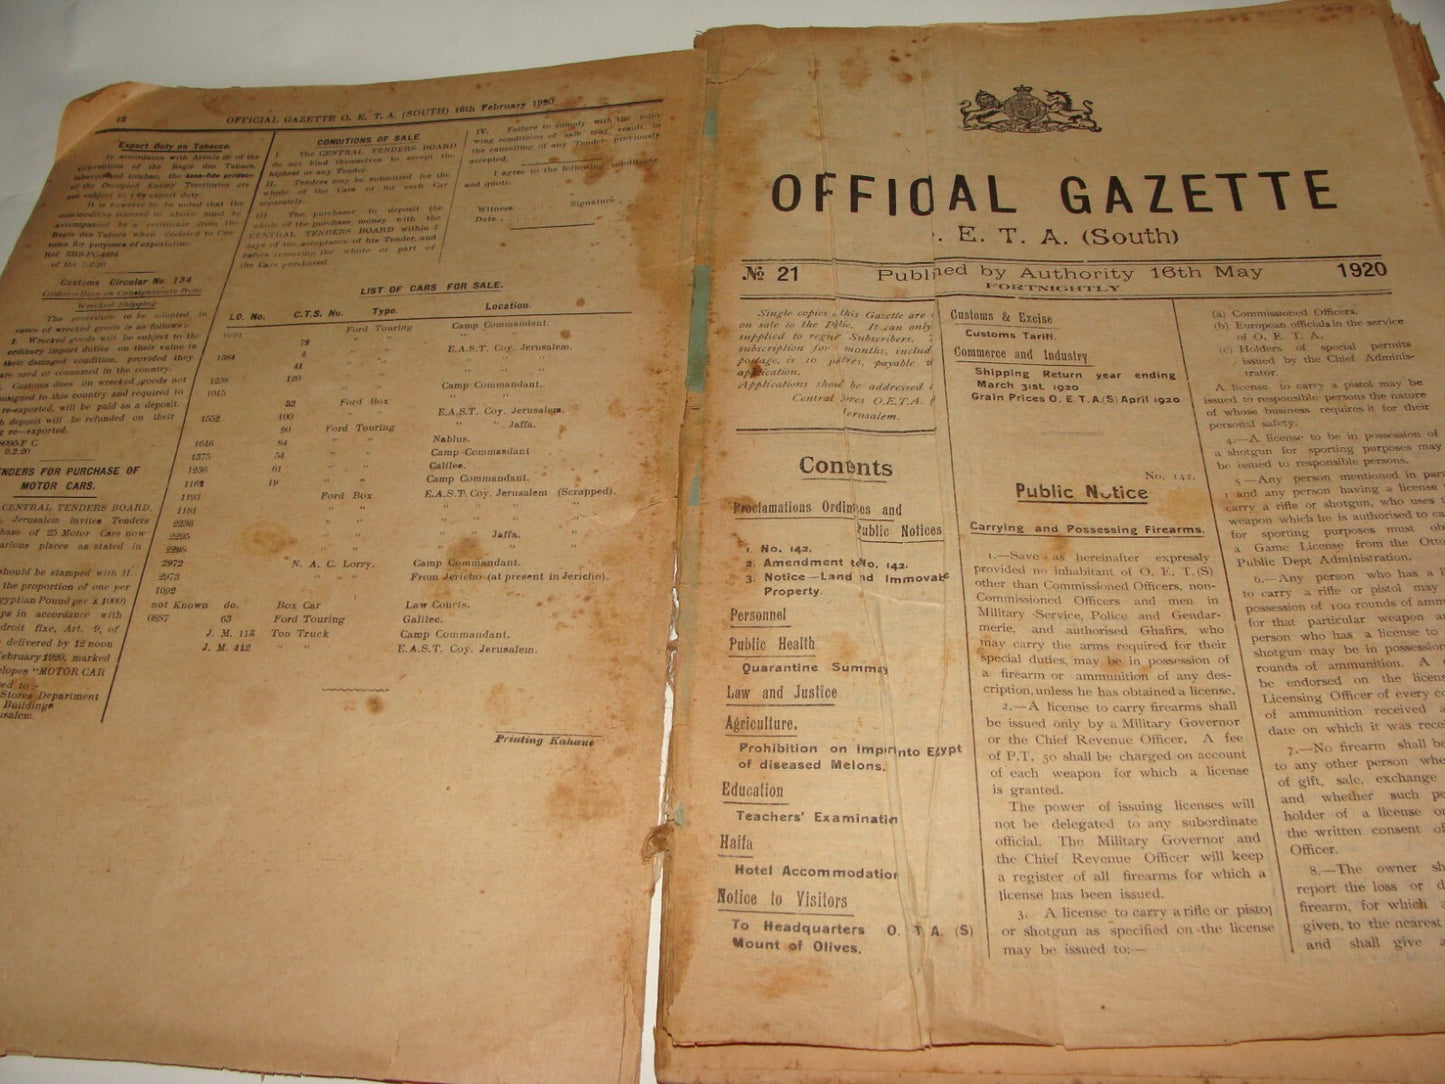 12
OFFICIAL GAZETTE O. E. T. A. (SOUTH) 16th February 1920
Export Duty on Tobacco.
In accordance with Article of the
Convention of the Regie des Tabacs,
tobacco and tombac, the bona-fide produce
of the Occupied Enemy Territories are
not subject to export duty.
It is however to be noted that the
commodities referred to above must be
accompanied by a certificate from the
Regie des Tabacs when declared to Cus-
toms for purposes of exportation.
of the 7-2-20
Customs Circular No. 134
Customs Dues on Consignments from
Wrecked Shipping
The procedure to be adopted in
cases of wrecked goods is as follows:-
1. Wrecked goods will be subject to the
ordinary import duties on their value in
their damaged condition, provided they
are used or consumed in the country.
Customs dues on wrecked goods not
nsigned to this country and required to
re-exported, will be paid as a deposit.
h deposit will be refunded on their
g re-exported.
9.2.20
NDERS FOR PURCHASE OF
MOTOR CARS.
CENTRAL TENDERS BOARD,
Jerusalem invites Tenders
hase of 25 Motor Cars now
arious places as stated in
should be stamped with H.
the proportion of one per
gyptian Pound per £ 1000)
ps in accordance with
droit fixe, Art. 9, of
delivered by 12 noon
ebruary 1920, marked
elopes "MOTOR CAR
ed to :-
Stores Department
Buildings
usalem.
CONDITIONS OF SALE
I. The CENTRAL TENDERS BOARD
do not bind themselves to accept the
highest or any Tender.
II. Tenders may be submitted for the
whole of the Cars or for each Car
separately.
III. The purchaser to deposit the
whole of the purchase money with the
CENTRAL TENDERS BOARD within 7
days of the acceptance of his Tender, and
before removing the whole or part of
the Cars purchased.
IV. Failure to comply with the follo-
wing conditions of sale may result in
the cancelling of any Tender previously
accepted.
I agree to the following conditions
and quote.
Witness . . . . Signature .
Date . . . . .
LIST OF CARS FOR SALE.
I.O. No. C.T.S. No. Type. Location.
Ford Touring Camp Commandant.
72 " " " "
4 " " E.A.S.T. Coy. Jerusalem.
1384 41 " " " "
1238 120 " " Camp Commandant.
1015
52 Ford Box
1552 100 " " E.A.S.T. Coy. Jerusalem.
90 Ford Touring " " Jaffa.
1646 84 " " Nablus.
1375 54 " " Camp Commandant
1236 61 " " Galilee.
1162 19 " " Camp Commandant.
1193 Ford Box E.A.S.T. Coy. Jerusalem (Scrapped).
1181 " " " " "
2236 " " " " "
2295 " " " " Jaffa.
2298 " " " " "
2972 N. A. C. Lorry. Camp Commandant.
2973 " " From Jericho (at present in Jericho).
1092
not Known do. Box Car Law Courts.
0887 63 Ford Touring Galilee.
J. M. 112 Ton Truck Camp Commandant.
J. M. 412 " " E.A.S.T. Coy. Jerusalem.
Printing Kahane
OFFICIAL GAZETTE
. E. T. A. (South)
№ 21 Published by Authority 16th May 1920
FORTNIGHTLY
Single copies this Gazette are
on sale to the . It can only
supplied to Subscribers,
subscription for months, includ
postage, is 10 , payable
application.
Applications should be addressed
Central ores O.E.T.A.
erusalem.
Contents
Proclamations Ordin es and
ublic Notices
1. No. 142.
2. Amendment to No. 142.
3. Notice—Land nd Immovable
Property.
Personnel
Public Health
Quarantine Summay
Law and Justice
Agriculture.
Prohibition on Import into Egypt
of diseased Melons.
Education
Teachers' Examinatin
Haifa
Hotel Accommodation
Notice to Visitors
To Headquarters O. T A. (S)
Mount of Olives.
Customs & Excise
Customs Tariff.
Commerce and Industry
Shipping Return year ending
March 31st, 1920
Grain Prices O. E.T.A(S) April 1920
No. 142.
Public Notice
Carrying and Possessing Firearms.
1.—Save as hereinafter expressly
provided no inhabitant of O. E. T.(S)
other than Commissioned Officers, non-
Commissioned Officers and men in
Military Service, Police and Gendar-
merie, and authorised Ghafirs, who
may carry the arms required for their
special duties, may be in possession of
a firearm or ammunition of any des-
cription, unless he has obtained a license.
2.—A license to carry firearms shall
be issued only by a Military Governor
or the Chief Revenue Officer. A fee
of P.T. 50 shall be charged on account
of each weapon for which a license
is granted.
The power of issuing licenses will
not be delegated to any subordinate
official. The Military Governor and
the Chief Revenue Officer will keep
a register of all firearms for which a
license has been issued.
3. A license to carry a rifle or pistol
or shotgun as specified on the license
may be issued to:—
(a) Commissioned Officers.
(b) European officials in the service
of O. E. T. A.
(c) Holders of special permits
issued by the Chief Adminis-
trator.
A license to carry a pistol may be
issued to responsible persons the nature
of whose business requires it for their
personal safety.
4.—A license to be in possession of
a shotgun for sporting purposes may
be issued to responsible persons.
5—Any person mentioned in para
1 and any person having a license
carry a rifle or shotgun, who uses
weapon which he is authorised to ca
for sporting purposes must ob
a Game License from the Otto
Public Dept Administration.
6.—Any person who has a l
to carry a rifle or pistol may
possession of 100 rounds of amm
for that particular weapon an
person who has a license to
shotgun may be in possession
rounds of ammunition. A
be endorsed on the licens
Licensing Officer of every co
of ammunition received a
date on which it was rece
7.—No firearm shall be
to any other person whe
of gift, sale, exchange
and whether such pe
holder of a license or
the written consent of
Officer.
8.—The owner sh
report the loss or d
firearm, for which a
given, to the nearest
and shall give a